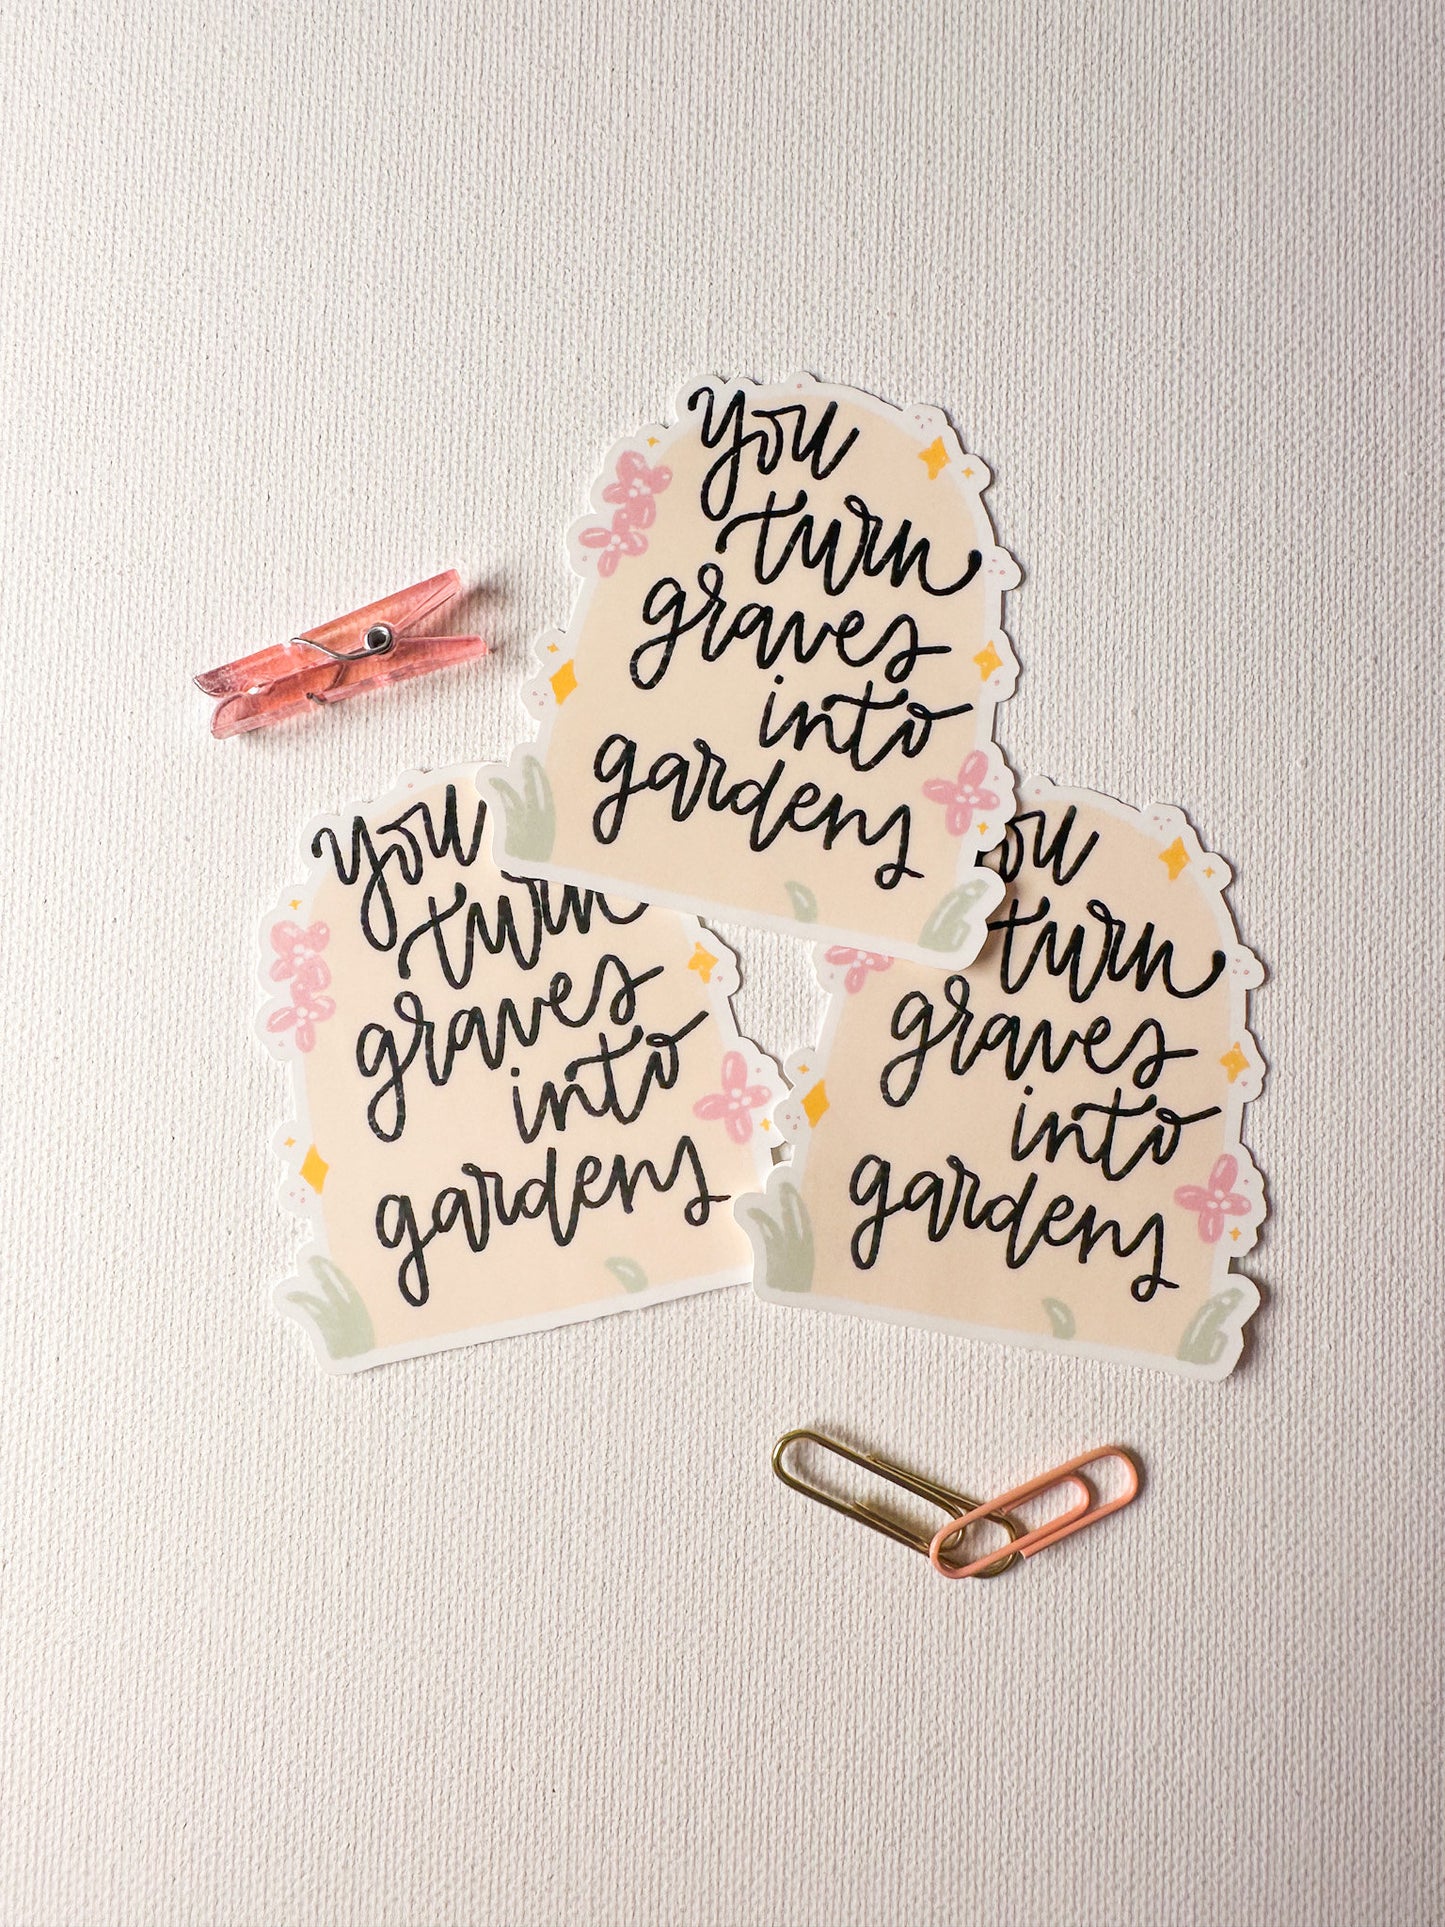 you
turn
graves
into
gardens
you
turn
graves
into
gardens
you
turn
graves
into
gardens